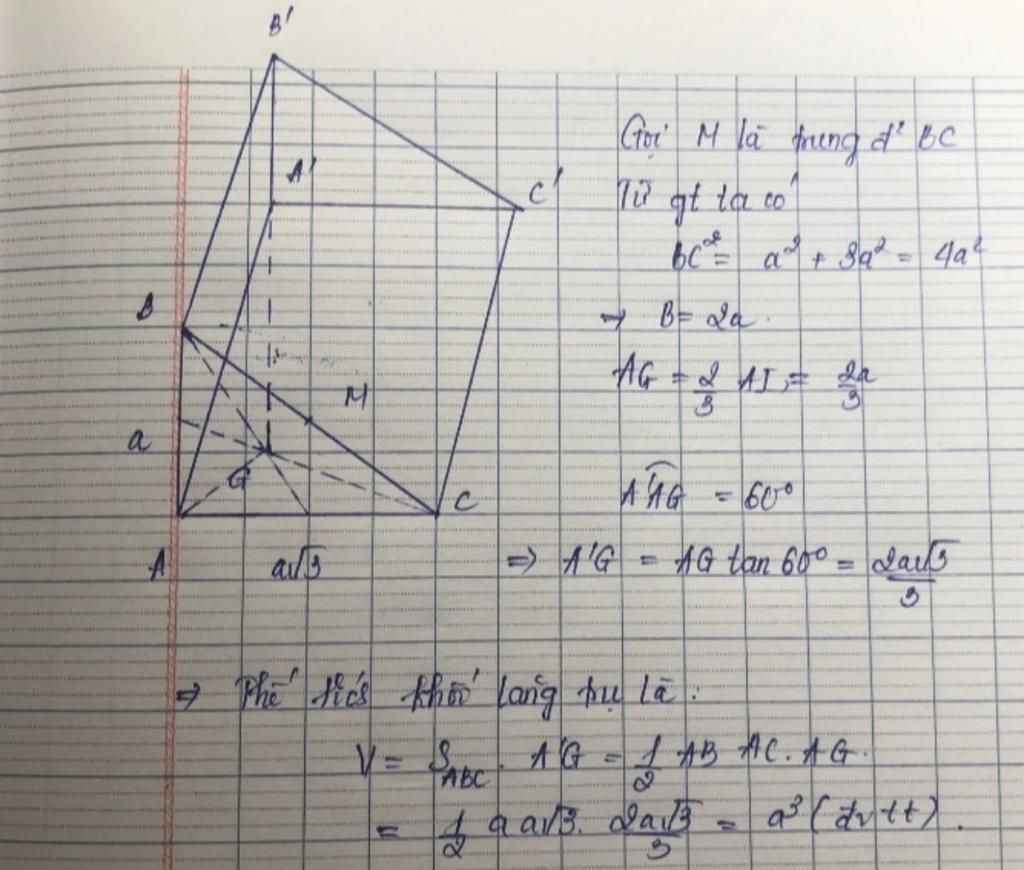 B'
A'
C'
B
M
a
G
C
A
a√3
Gọi M là trung đ² BC
Từ gt ta có
BC² = a² + 3a² = 4a²
→ B = 2a.
AG = 2/3 AI, = 2a/3
A'AG = 60°
=> A'G = AG tan 60° = 2a√3/3
=> Thể tích khối lăng trụ là:
V = S_ABC . A'G = 1/2 AB AC. AG.
= 1/2 a a√3. 2a√3/3 = a³ (đvtt).